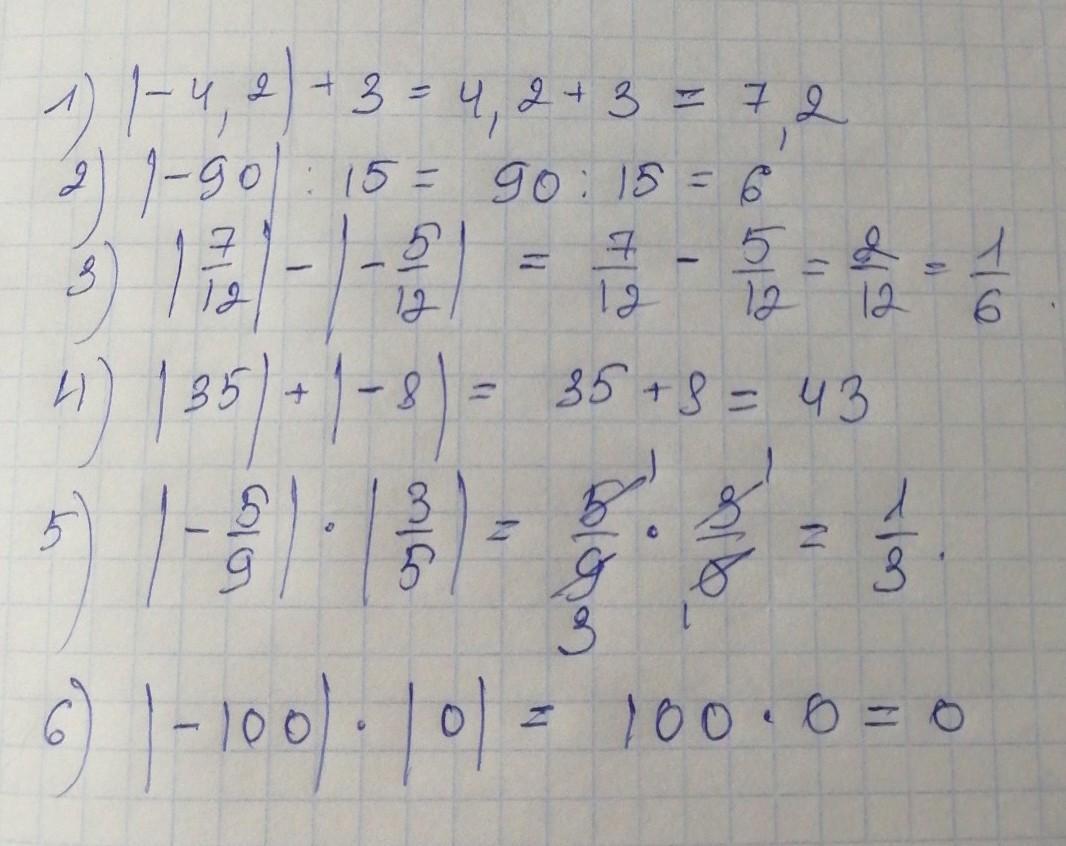 1) |-4,2| + 3 = 4,2 + 3 = 7,2
2) |-90| : 15 = 90 : 15 = 6
3) |7/12| - |-5/12| = 7/12 - 5/12 = 2/12 = 1/6.
4) |35| + |-8| = 35 + 8 = 43
5) |-5/9| · |3/5| = 5/9 · 3/5 = 1/3.
1 1
3 1
6) |-100| · |0| = 100 · 0 = 0